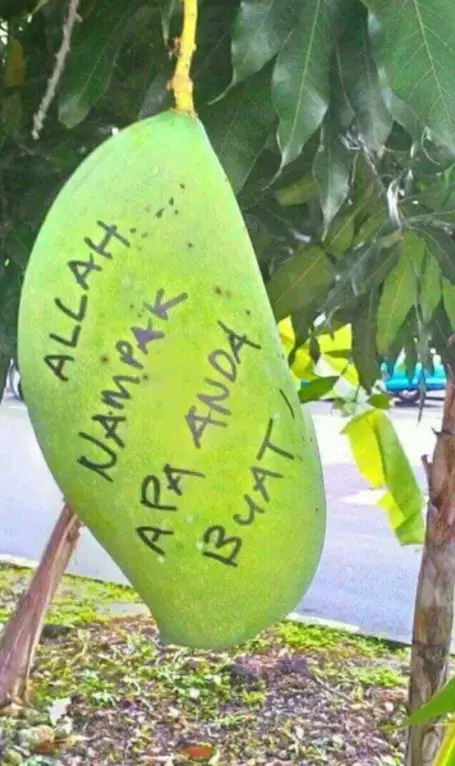 ALLAH..
NAMPAK
APA ANDA
BUAT!